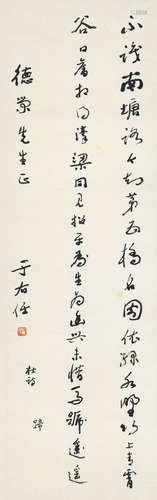 不識南塘路今知第五橋名園依綠水野竹上青霄
谷口舊相得濠梁同見招平生為幽興未惜馬蹏遙
杜詩 蹄
先生正
于右任